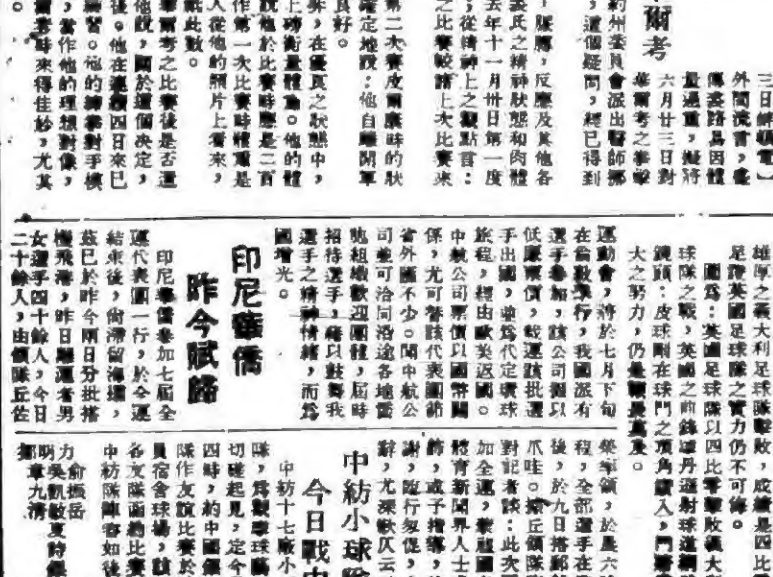 三日
外間流言，盛
傳姜路易因體
量過重，擬將
六月廿三日對
華爾考之拳擊
爾考
，這個疑問，經已得到
約州委員會派出醫師挪
，反應及其他各
姜氏之精神狀態和肉體
去年十一月卅日第一度
，從精神上之觀點言：
之比賽較諸上次比賽來
第二次賽皮爾廉時的狀
確定地說：他自離開軍
良好。
，在優良之狀態中，
上磅衡量體重。他的體
說他於比賽時應是二百
作第一次比賽時體重是
人從他的照片上看來，
此數。
華爾考之比賽後是否還
他說，關於這個決定，
後。他在連續四日來已
練習。他的練拳對手模
，當作他的理想對像，
爾考時來得佳妙，尤其
雄厚之義大利足球隊擊敗，成績是四比
足證英國足球隊之實力仍不可侮。
圖爲：英國足球隊以四比零擊敗義大
球隊之戰，英國之前鋒
鏡頭：皮球剛在球門之頂角鑽入，門
大之努力，仍
運動會，將於七月下旬
在倫敦舉行，我國派有
選手參加，該公司擬以
低廉票價，載運該批選
手出國，並爲代定環球
旅程，經由歐美返國。
中航公司票價以國幣關
係，尤可替該代表團節
省外匯不少。聞中航公
司並可洽同沿途各地當
組織歡迎團體，屆時
招待選手，藉以鼓舞我
選手之精神情緒，而爲
國增光。
印尼華僑
昨今賦歸
印尼華僑參加七屆全
運代表團一行，於全運
結束後，尚滯留海壖，
茲已於昨今兩日分批搭
機飛港，昨日離滬者男
女選手四十餘人，今日
二十餘人，由領隊丘
率領，於晨六
程，全部選手在
後，於九日搭
爪哇。丘領隊
對記者談：此次
加全運，
體育新聞界人士
，或予指導，
謝，臨行匆促，
辭，尤深歉仄云
中紡小球
今日戰
中紡十七廠小
隊，爲觀摩球
切磋起見，定今
四時，約中國
隊作友誼比賽於
員宿舍球場，
各友隊函約比賽
中紡隊陣容如後
俞振岳
力
明吳凱敏夏時
鄒章九清